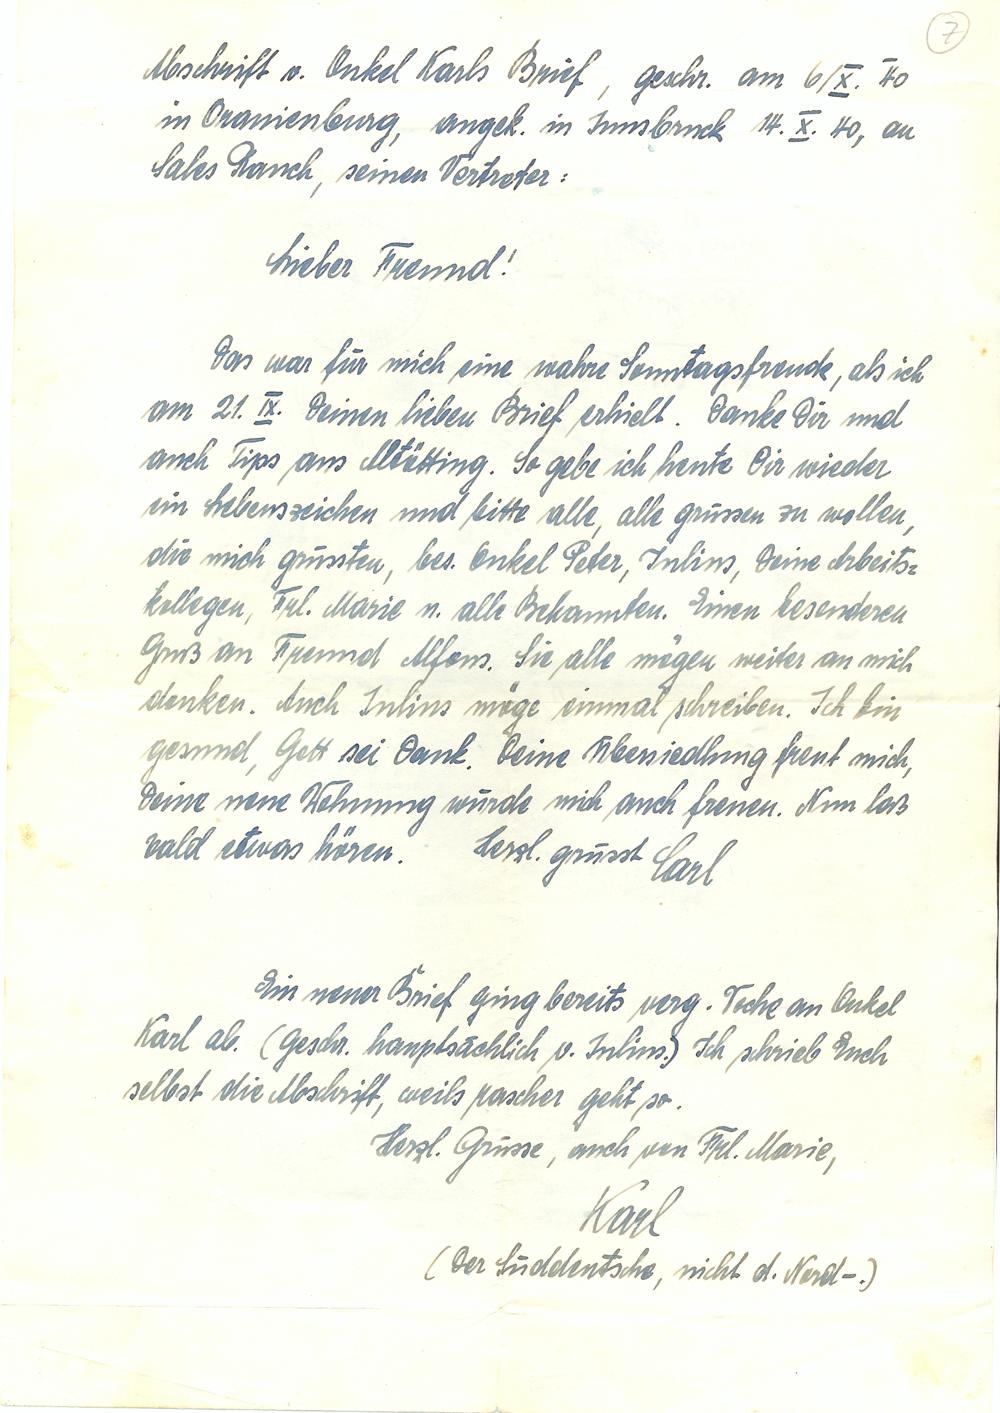 7
Abschrift v. Onkel Karls Brief, geschr. am 6/X. 40
in Oranienburg, angek. in Innsbruck 14. X. 40, an
Sales Rauch, seinen Vertreter:
Lieber Freund!
Das war für mich eine wahre Sonntagsfreude, als ich
am 21. IX. Deinen lieben Brief erhielt. Danke Dir und
auch Tips aus Altötting. So gebe ich heute Dir wieder
ein Lebenszeichen und bitte alle, alle grüssen zu wollen,
die mich grüssten, bes. Onkel Peter, Julius, Deine Arbeits=
kollegen, Frl. Marie u. alle Bekannten. Einen besonderen
Gruß an Freund Alfons. Sie alle mögen weiter an mich
denken. Auch Julius möge einmal schreiben. Ich bin
gesund, Gott sei Dank. Deine Übersiedlung freut mich,
Deine neue Wohnung würde mich auch freuen. Nun laß
bald etwas hören. Herzl. grüsst Carl
Ein neuer Brief ging bereits verg. Woche an Onkel
Karl ab. (Geschr. hauptsächlich v. Julius.) Ich schrieb Euch
selbst die Abschrift, weils rascher geht so.
Herzl. Grüsse, auch von Frl. Marie,
Karl
(Der Süddeutsche, nicht d. Nord-.)